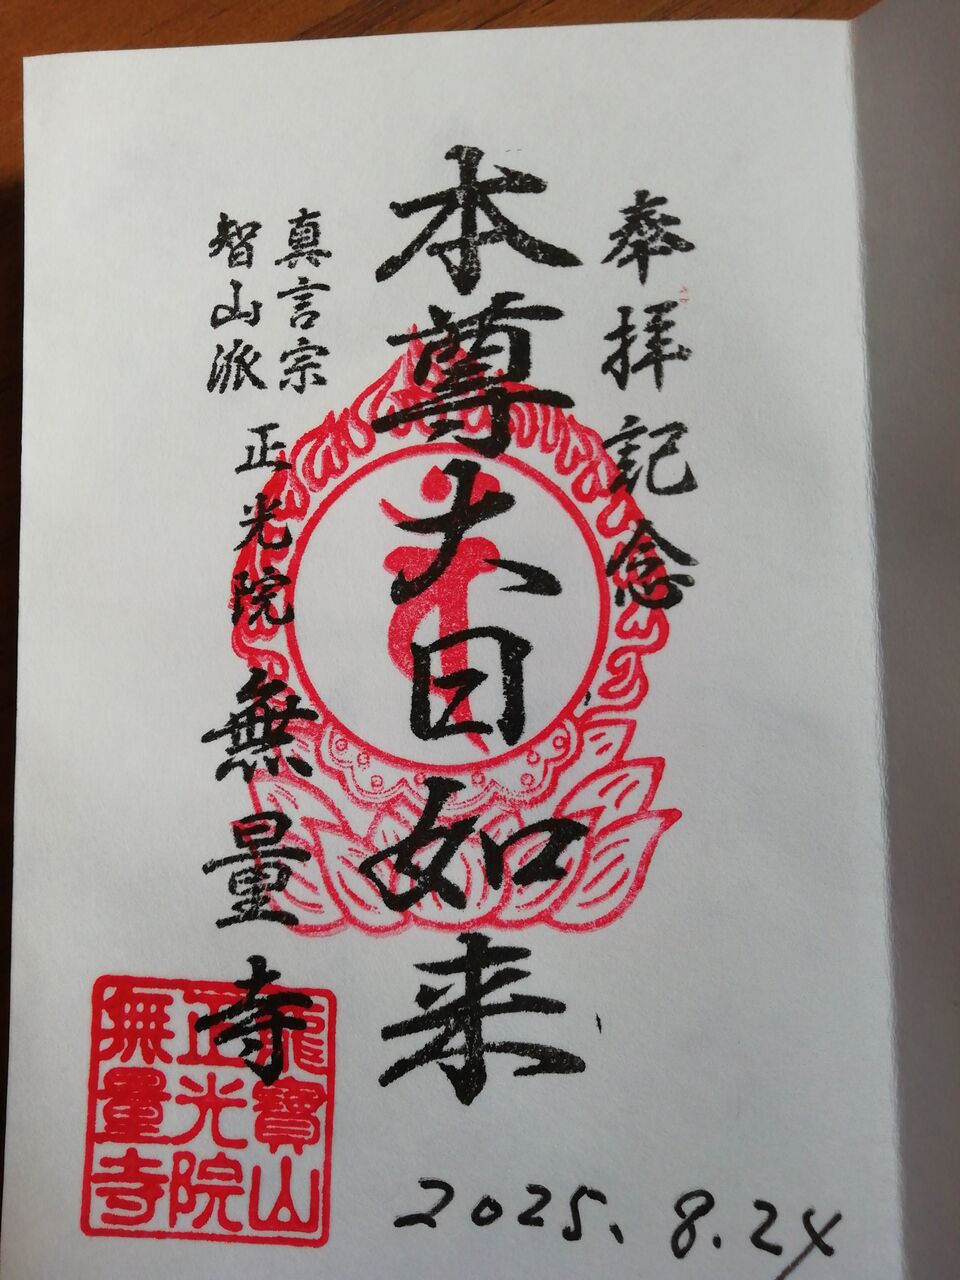 奉拝記念
本尊大日如来
真言宗
智山派
正光院 無量寺
龍寶山
正光院
無量寺
2025.8.24